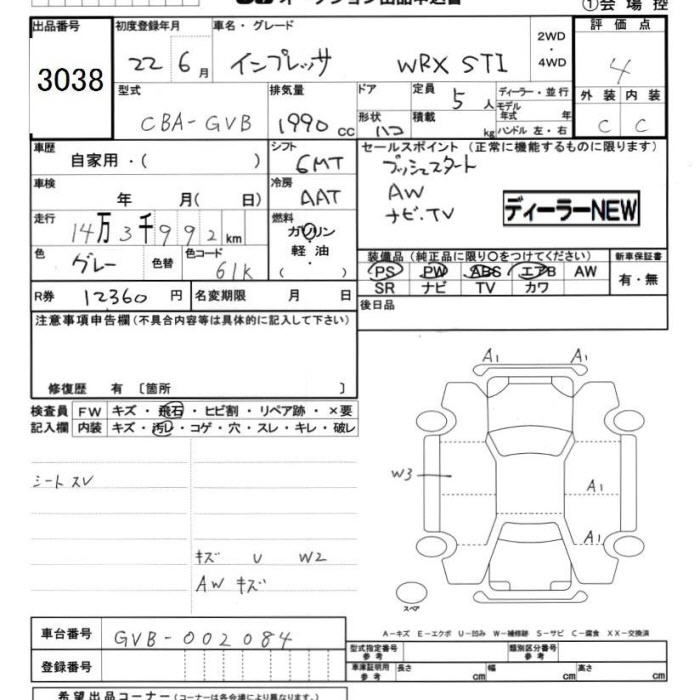 ①会場控
出品番号 初度登録年月 車名・グレード 2WD ・ 4WD 評価点
3038 22 6月 インプレッサ WRX STI 4
型式 排気量 ドア 定員 5人 ディーラー・並行 外装 内装
CBA-GVB 1990cc 形状 ハコ 積載 kg モデル年式 年 C C
ハンドル 左・右
車歴 自家用・( ) シフト 6MT セールスポイント (正常に機能するものに限ります)
プッシュスタート
車検 年 月( 日) 冷房 AAT AW
ナビ.TV ディーラーNEW
走行 14万3千992km 燃料 ガソリン・軽油 ( ・ )
色 グレー 色替 色コード 61K 装備品 (純正品に限り○をつけてください) 新車保証書
PS PW ABS エアB AW 有・無
R券 12360円 名変期限 月 日 SR ナビ TV カワ
注意事項申告欄(不具合内容等は具体的に記入して下さい) 後日品
修復歴 有 〔箇所 〕
検査員 FW キズ・飛石・ヒビ割・リペア跡・×要
記入欄 内装 キズ・汚レ・コゲ・穴・スレ・キレ・破レ
A1 A1
シートスレ W3 A1
A1
キズ U W2
AWキズ
スペア
A-キズ E-エクボ U-凹み W-補修跡 S-サビ C-腐食 XX-交換済
車台番号 GVB-002084 型式指定番号 参考 類別区分番号 参考
登録番号 車庫証明用 参考 長さ cm 幅 cm 高さ cm
希望出品コーナー(コーナーは各会場により異なります)